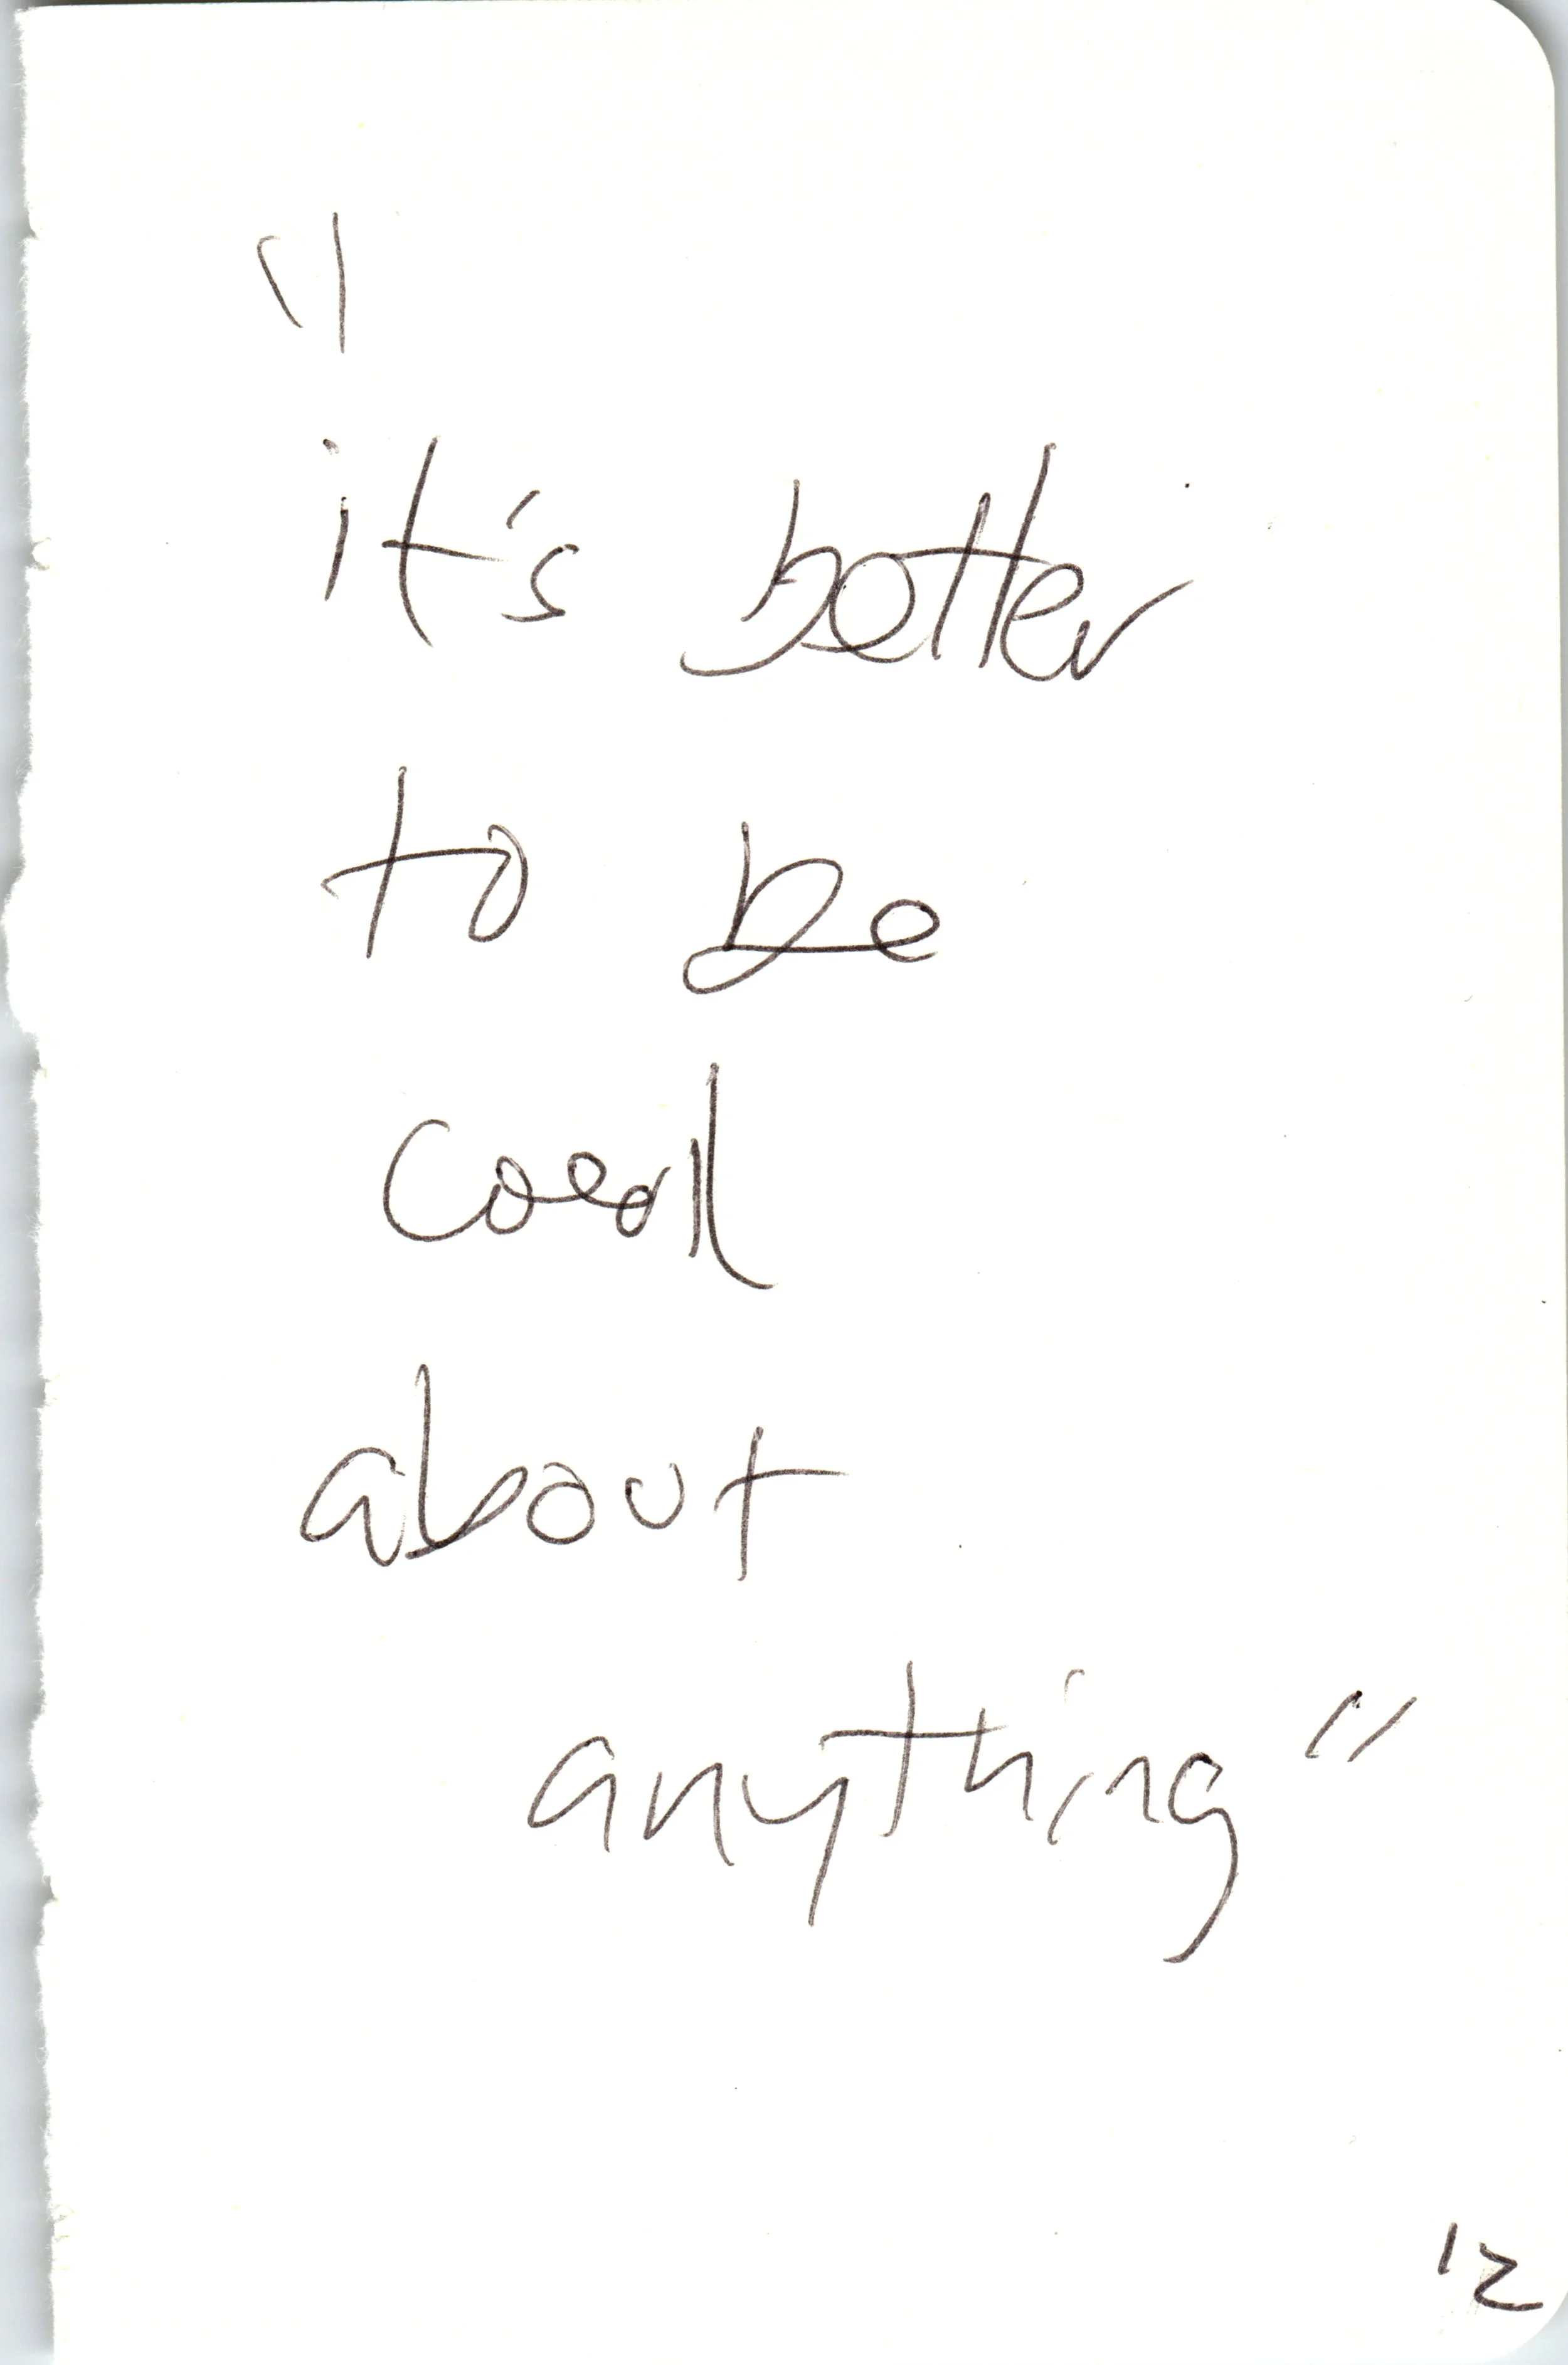 "
it's better
to be
about
anything"
12